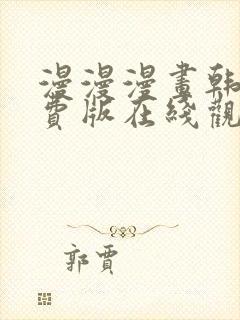 漫漫漫畫韩
費版在綫觀
郭賈